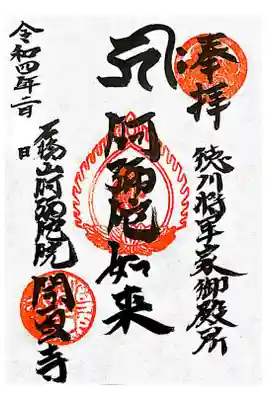 奉拝
徳川将軍家御殿所
阿弥陀如来
山阿弥陀院
寺
令和四年二月 日